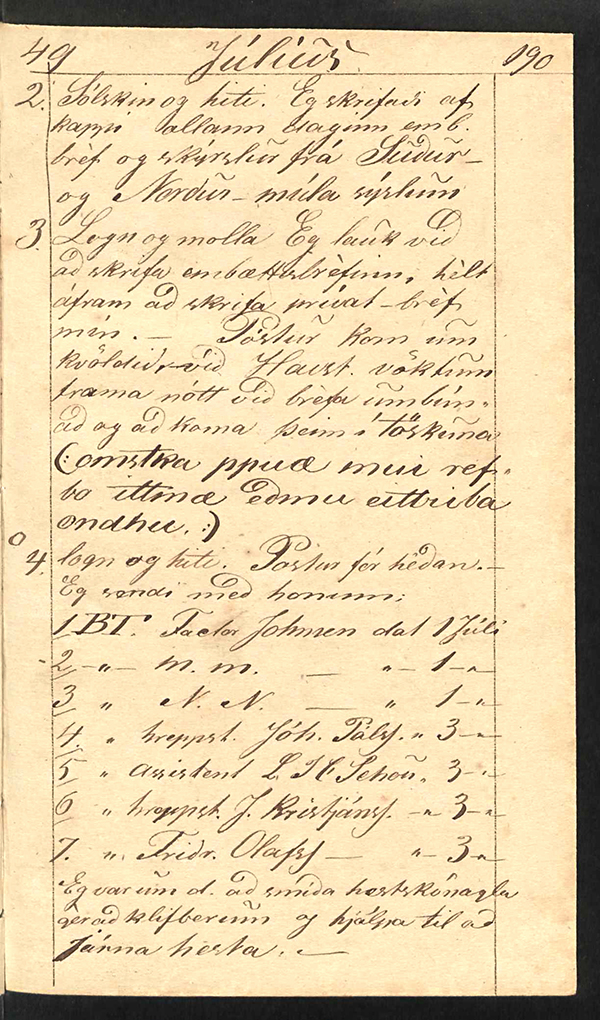 49 Júlíus 190
2. Sólskin og hiti. Eg skrifaði af
kappi allann daginn emb.
bréf og skýrslur frá Suður-
og Norður-múla sýslum
3. Logn og molla Eg lauk við
að skrifa embættisbréfinn, hélt
áfram að skrifa prívat-bréf
mín. — Póstur kom um
kvöldið, við Havst. vöktum
frama nótt við bréfa umbún-
að og að koma þeim í töskuna
(: omstka ppuæ imii ref-
bo ittmæ eðmu eittriba
ondhu. :)
4. logn og hiti. Postur fór héðan. —
Eg sendi með honum:
1 BT. Factor Johnsen dat 1 Júli
2 -"- m. m. — "- 1 -"-
3 " N. N. — " 1 -"
4. " hreppst. Jóh. Pálss. " 3 -"-
5 " assistent L. H. Schou " 3 -"
6 " hreppst. J. Kristjánss. -" 3 -"-
7. " Friðr. Olafss — "- 3 -"
Eg var um d. að smíða hestskónagla
gera að klifberum og hjálpa til að
járna hesta. —